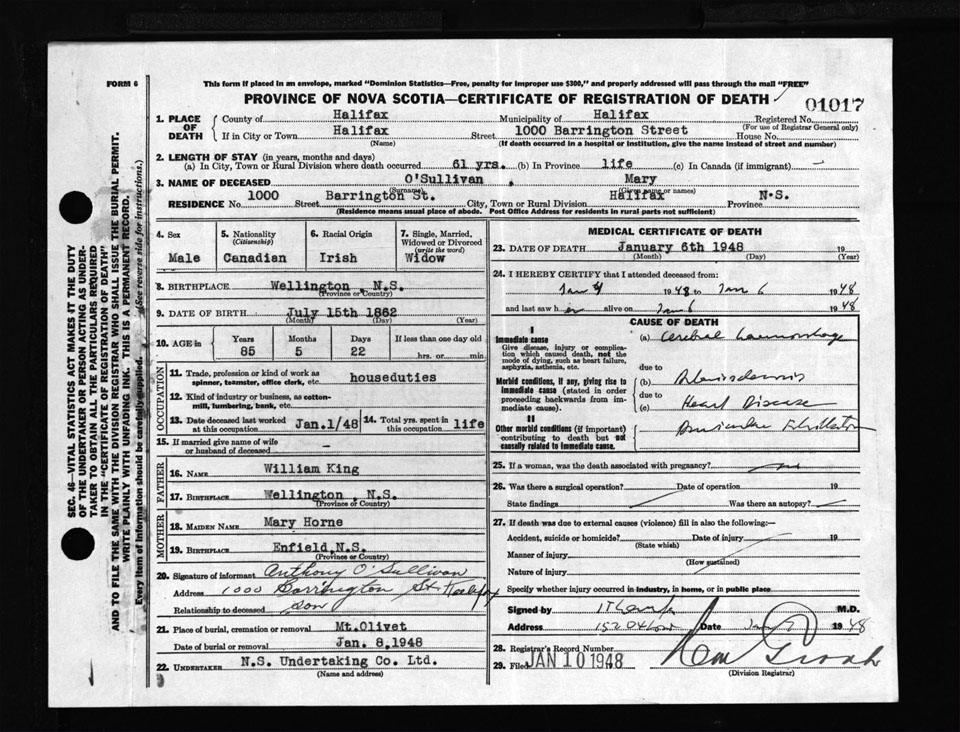 FORM 6
This form if placed in an envelope, marked "Dominion Statistics—Free, penalty for improper use $300," and properly addressed will pass through the mail "FREE"
PROVINCE OF NOVA SCOTIA—CERTIFICATE OF REGISTRATION OF DEATH
01017
1. PLACE OF DEATH
County of Halifax Municipality of Halifax Registered No.
(For use of Registrar General only)
If in City or Town Halifax Street 1000 Barrington Street House No.
(Name) (If death occurred in a hospital or institution, give the name instead of street and number)
2. LENGTH OF STAY (in years, months and days)
(a) In City, Town or Rural Division where death occurred 61 yrs. (b) In Province life (c) In Canada (if immigrant) -
3. NAME OF DECEASED O'Sullivan , Mary
(Surname) (Given name or names)
RESIDENCE No. 1000 Street Barrington St. City, Town or Rural Division Halifax Province N.S.
(Residence means usual place of abode. Post Office Address for residents in rural parts not sufficient)
4. Sex Male
5. Nationality (Citizenship) Canadian
6. Racial Origin Irish
7. Single, Married, Widowed or Divorced (write the word) Widow
8. BIRTHPLACE Wellington, N.S.
(Province or Country)
9. DATE OF BIRTH July 15th 1862
(Month) (Day) (Year)
10. AGE in Years 85 Months 5 Days 22 If less than one day old hrs. or min.
OCCUPATION
11. Trade, profession or kind of work as spinner, teamster, office clerk, etc. houseduties
12. Kind of industry or business, as cotton-mill, lumbering, bank, etc.
13. Date deceased last worked at this occupation Jan.1/48
14. Total yrs. spent in this occupation life
15. If married give name of wife or husband of deceased -
FATHER
16. NAME William King
17. BIRTHPLACE Wellington, N.S.
(Province or Country)
MOTHER
18. MAIDEN NAME Mary Horne
19. BIRTHPLACE Enfield, N.S.
(Province or Country)
20. Signature of informant Anthony O'Sullivan
Address 1000 Barrington St. Halifax
Relationship to deceased Son
21. Place of burial, cremation or removal Mt.Olivet
Date of burial or removal Jan. 8,1948
22. UNDERTAKER N.S. Undertaking Co. Ltd.
(Name and address)
MEDICAL CERTIFICATE OF DEATH
23. DATE OF DEATH January 6th 1948 19
(Month) (Day) (Year)
24. I HEREBY CERTIFY that I attended deceased from:
Jan 4 1948 to Jan 6 1948
and last saw her alive on Jan 6 1948
CAUSE OF DEATH
I
Immediate cause
Give disease, injury or complication which caused death, not the mode of dying, such as heart failure, asphyxia, asthenia, etc.
(a) Cerebral haemorrhage
due to
Morbid conditions, if any, giving rise to immediate cause (stated in order proceeding backwards from immediate cause).
(b)
due to
(c) Heart Disease
II
Other morbid conditions (if important) contributing to death but not causally related to immediate cause.
25. If a woman, was the death associated with pregnancy? no
26. Was there a surgical operation? Date of operation 19
State findings Was there an autopsy?
27. If death was due to external causes (violence) fill in also the following:—
Accident, suicide or homicide? Date of injury 19
(State which)
Manner of injury
(How sustained)
Nature of injury
Specify whether injury occurred in industry, in home, or in public place
Signed by M.D.
Address Date Jan 1948
28. Registrar's Record Number
29. Filed JAN 10 1948
(Division Registrar)
SEC. 46—VITAL STATISTICS ACT MAKES IT THE DUTY OF THE UNDERTAKER OR PERSON ACTING AS UNDERTAKER TO OBTAIN ALL THE PARTICULARS REQUIRED IN THE "CERTIFICATE OF REGISTRATION OF DEATH" AND TO FILE THE SAME WITH THE DIVISION REGISTRAR WHO SHALL ISSUE THE BURIAL PERMIT.
WRITE PLAINLY WITH UNFADING INK. THIS IS A PERMANENT RECORD.
Every item of information should be carefully supplied. (See reverse side for instructions.)